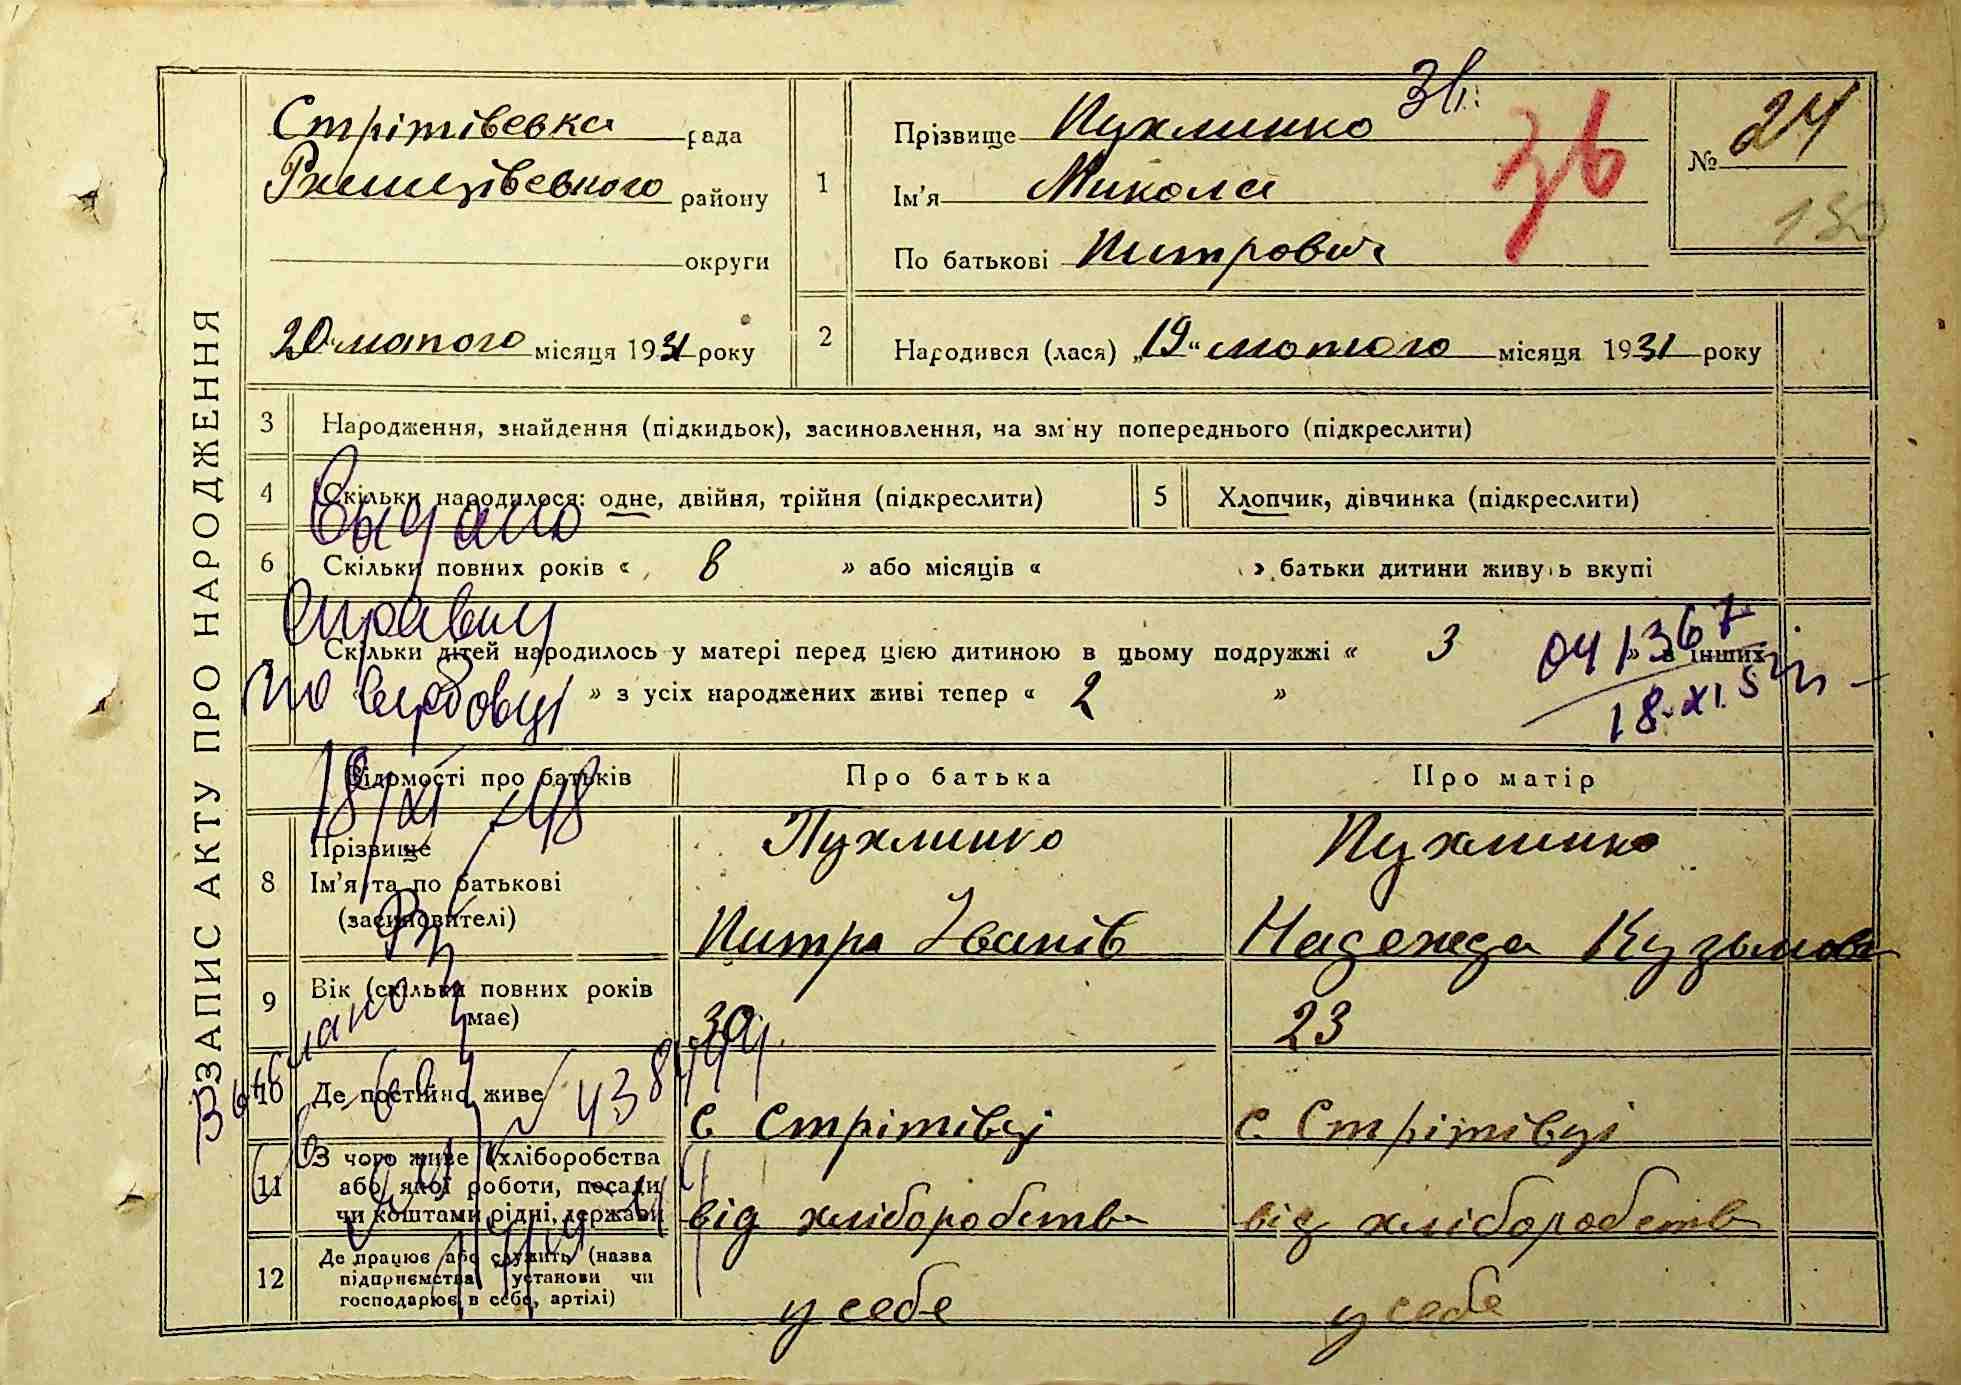 ЗАПИС АКТУ ПРО НАРОДЖЕННЯ
Стрітівська рада
Ржищівського району
округи
20 лютого місяця 1931 року
1
Прізвище Пухлинко
Ім'я Микола
По батькові Питрович
Зв.
Зв
№ 24
130
2
Народився (лася) „19“ лютого місяця 1931 року
3 Народження, знайдення (підкидьок), засиновлення, на зміну попереднього (підкреслити)
4 Скільки народилося: одне, двійня, трійня (підкреслити)
5 Хлопчик, дівчинка (підкреслити)
6 Скільки повних років « 8 » або місяців « » батьки дитини живуть вкупі
Скільки дітей народилось у матері перед цією дитиною в цьому подружжі « 3 » в інших
» з усіх народжених живі тепер « 2 »
041367
18.XI.
Відомості про батьків
Про батька
Про матір
8 Прізвище
Ім'я та по батькові
(засиновителі)
Пухлинко
Питро Іванів
Пухлинко
Надежда Кузьмова
9 Вік (скільки повних років має)
30
23
10 Де постійно живе
с Стрітівці
с. Стрітівці
11 З чого живе (хліборобства
або якої роботи, посади
чи коштами рідні, держави
від хліборобства
від хліборобства
12 Де працює або служить (назва
підприємства установи чи
господарює в себе, артілі)
у себе
у себе
Выдано
справку
18/XI 48